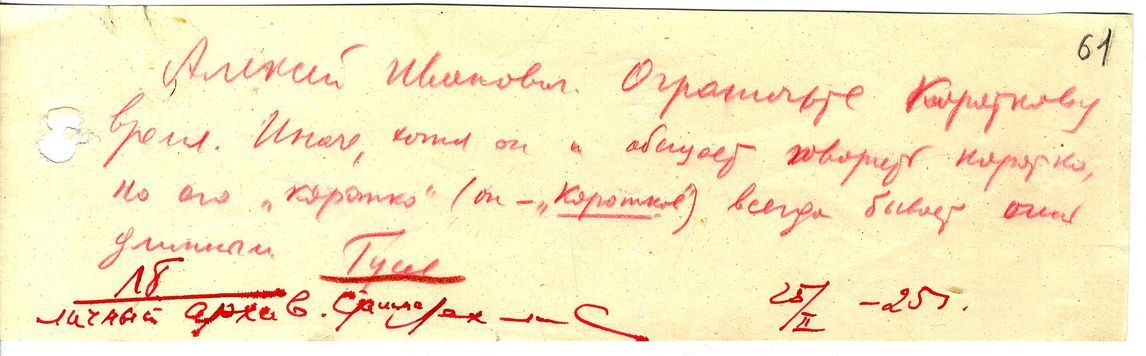 61
Алексей Иванович. Ограничьте Короткову
время. Иначе, хотя он и обещает говорить коротко,
но его „коротко“ (он – „Коротков“) всегда бывает очень
длинным Гусев
1б
личный архив.
25/II – 25 г.